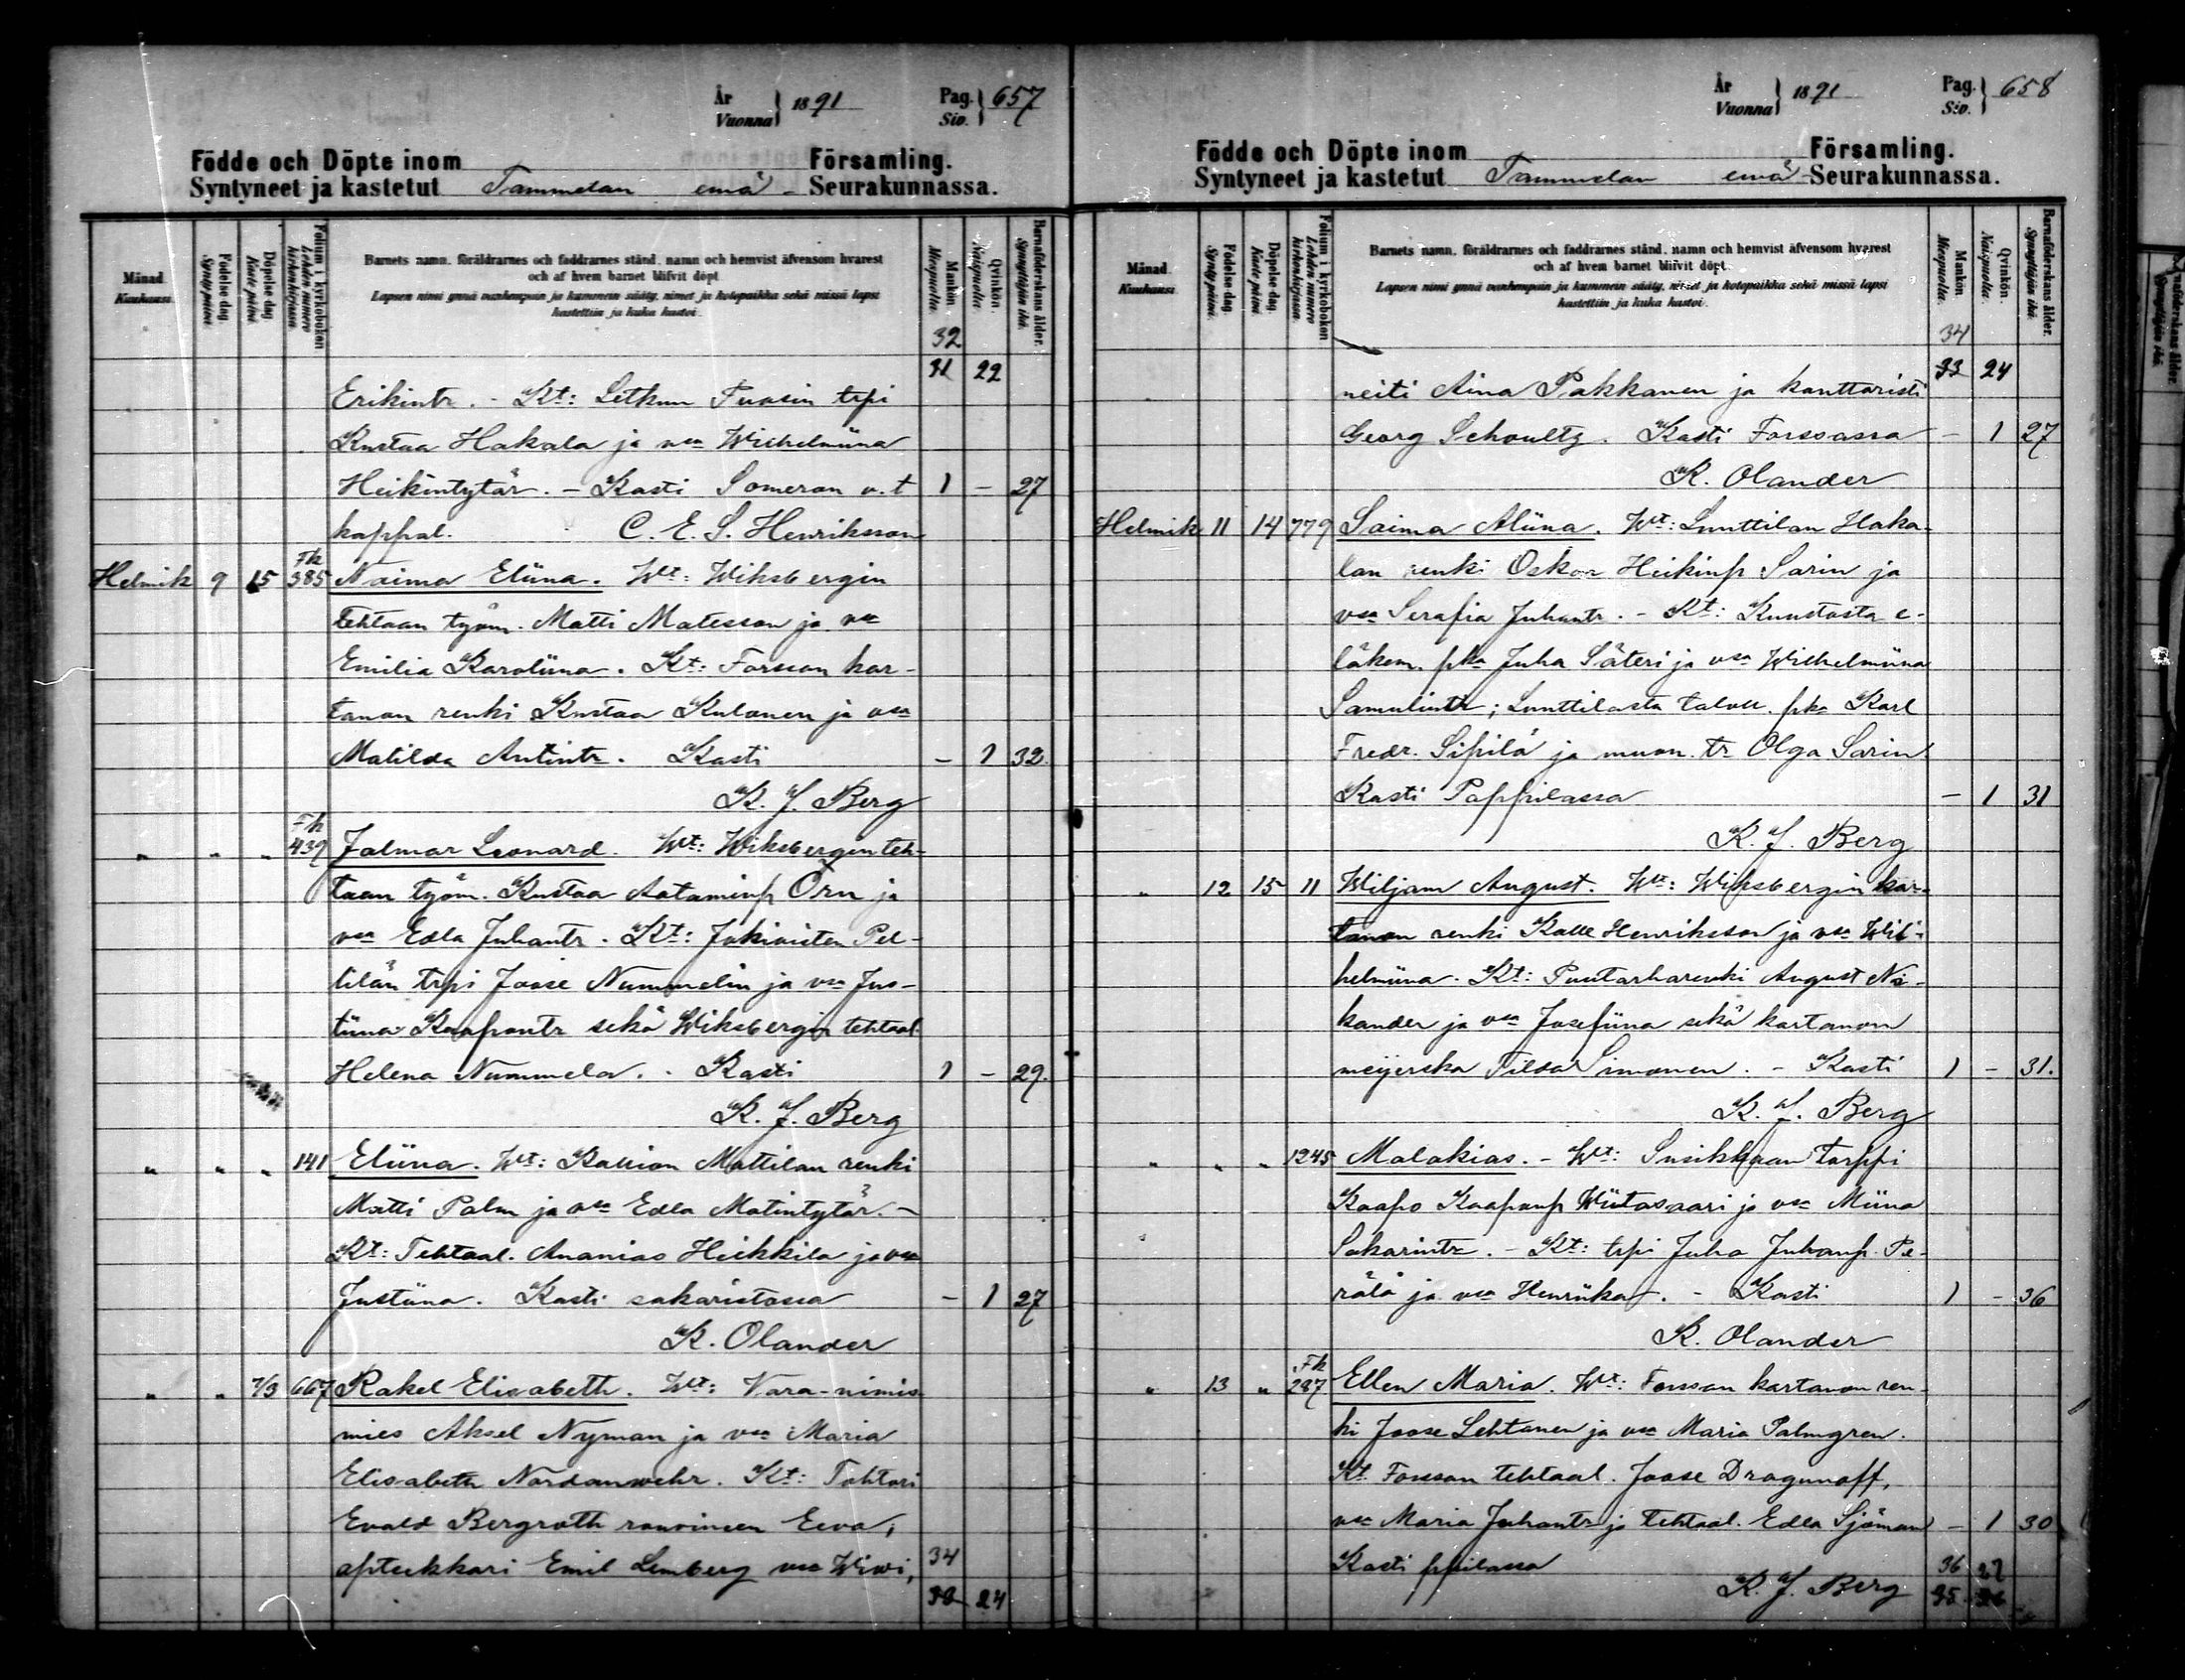 År
Vuonna } 1891
Pag.
Siv. } 657
Födde och Döpte inom Församling.
Syntyneet ja kastetut Tammelan emä- Seurakunnassa.
Månad
Kuukausi
Födelse dag.
Synty päivä.
Döpelse dag
Kaste päivä
Folium i kyrkoboken
Lehden numero kirkonkirjassa
Barnets namn, föräldrarnes och faddrarnes stånd, namn och hemvist äfvensom hvarest
och af hvem barnet blifvit döpt.
Lapsen nimi ynnä vanhempain ja kummein sääty, nimet ja kotopaikka sekä missä lapsi
kastettiin ja kuka kastoi.
Mankön.
Miespuolta.
Qvinkön.
Naispuolta.
Barnaföderskans ålder.
Synnyttäjän ikä.
32
31 22
Erikintr. - Kt: Letkun Tuosin trpi
Kustaa Hakala ja vaa Wilhelmiina
Heikintytär. - Kasti Someron v.t 1 - 27
kappal. C. E. S. Henriksson
Helmik 9 15 Fk 385 Naima Eliina. Wt: Wiksbergin
tehtaan työm. Matti Matesson ja vaa
Emilia Karoliina. Kt: Forssan kar-
tanon renki Kustaa Kulonen ja vaa
Matilda Antintr. Kasti - 1 32.
K. J. Berg
" " " Fk 439 Jalmar Leonard. Wt: Wiksbergin teh-
taan työm. Kustaa Aataminp Örn ja
vaa Edla Juhantr. Kt: Jokioisten Pel-
tilän trpi Joose Nummelin ja vaa Jus-
tiina Kaapontr sekä Wiksbergin tehtaal.
Helena Nummela. - Kasti 1 - 29.
K. J. Berg
" " " 141 Eliina. Wt: Kallion Mattilan renki
Matti Palm ja vaa Edla Matintytär. -
Kt: Tehtaal. Ananias Heikkila ja vaa
Justiina. Kasti sakaristossa - 1 27
K. Olander
" " 7/3 667 Rakel Elisabeth. Wt: Vara-nimis
mies Aksel Nyman ja vaa Maria
Elisabeth Nordanwehr. Kt: Tohtori
Evald Bergroth rouvineen Eeva;
apteekkari Emil Lemberg vaa Wiwi, 34
24
År
Vuonna } 1891
Pag.
Siv. } 658
Födde och Döpte inom Församling.
Syntyneet ja kastetut Tammelan emä- Seurakunnassa.
Månad
Kuukausi
Födelse dag.
Synty päivä.
Döpelse dag.
Kaste päivä.
Folium i kyrkoboken
Lehden numero kirkonkirjassa.
Barnets namn, föräldrarnes och faddrarnes stånd, namn och hemvist äfvensom hvarest
och af hvem barnet blifvit döpt.
Lapsen nimi ynnä vanhempain ja kummein sääty, nimet ja kotopaikka sekä missä lapsi
kastettiin ja kuka kastoi.
Mankön
Miespuolta.
Qvinkön.
Naispuolta.
Barnaföderskans ålder.
Synnyttäjän ikä.
34
33 24
neiti Aina Pakkanen ja kanttoristi
Georg Schoultz. Kasti Forssassa - 1 27
K. Olander
Helmik 11 14 779 Saima Aliina. Wt: Lunttilan Haka-
lan renki Oskar Heikinp Sarin ja
vaa Serafia Juhantr. - Kt: Kuustosta e-
läkem. pka Juha Säteri ja vaa Wilhelmiina
Samulintr; Lunttilasta talon. pka Karl
Fredr. Sipilä ja muon. tr Olga Sarin.
Kasti Pappilassa - 1 31
K. J. Berg
" 12 15 11 Wiljam August. Wt: Wiksbergin kar-
tanon renki Kalle Henriksson ja vaa Wil-
helmiina. Kt: Puutarharenki August Ni-
kander ja vaa Josefiina sekä kartanon
meijerska Tilda Simonen. - Kasti 1 - 31.
K. J. Berg
" " " 1245 Malakias. - Wt: Susikkaan torppi
Kaapo Kaaponp Wiitasaari ja vaa Miina
Sakarintr. - Kt: trpi Juha Juhanp. Pe-
rälä ja vaa Henriika. - Kasti 1 - 36
K. Olander
" 13 " Fk 287 Ellen Maria. Wt: Forssan kartanon ren-
ki Joose Lehtonen ja vaa Maria Palmgren.
Kt. Forssan tehtaal. Joose Dragunoff,
vaa Maria Juhantr ja tehtaal. Edla Sjöman - 1 30
Kasti ppilassa 36 27
K. J. Berg 35 26